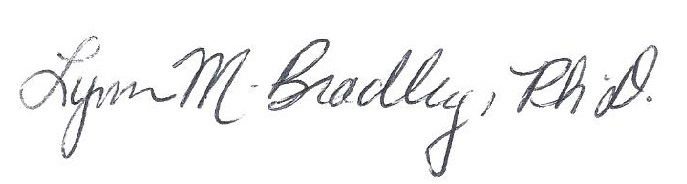 Lynn M. Bradley, Ph.D.